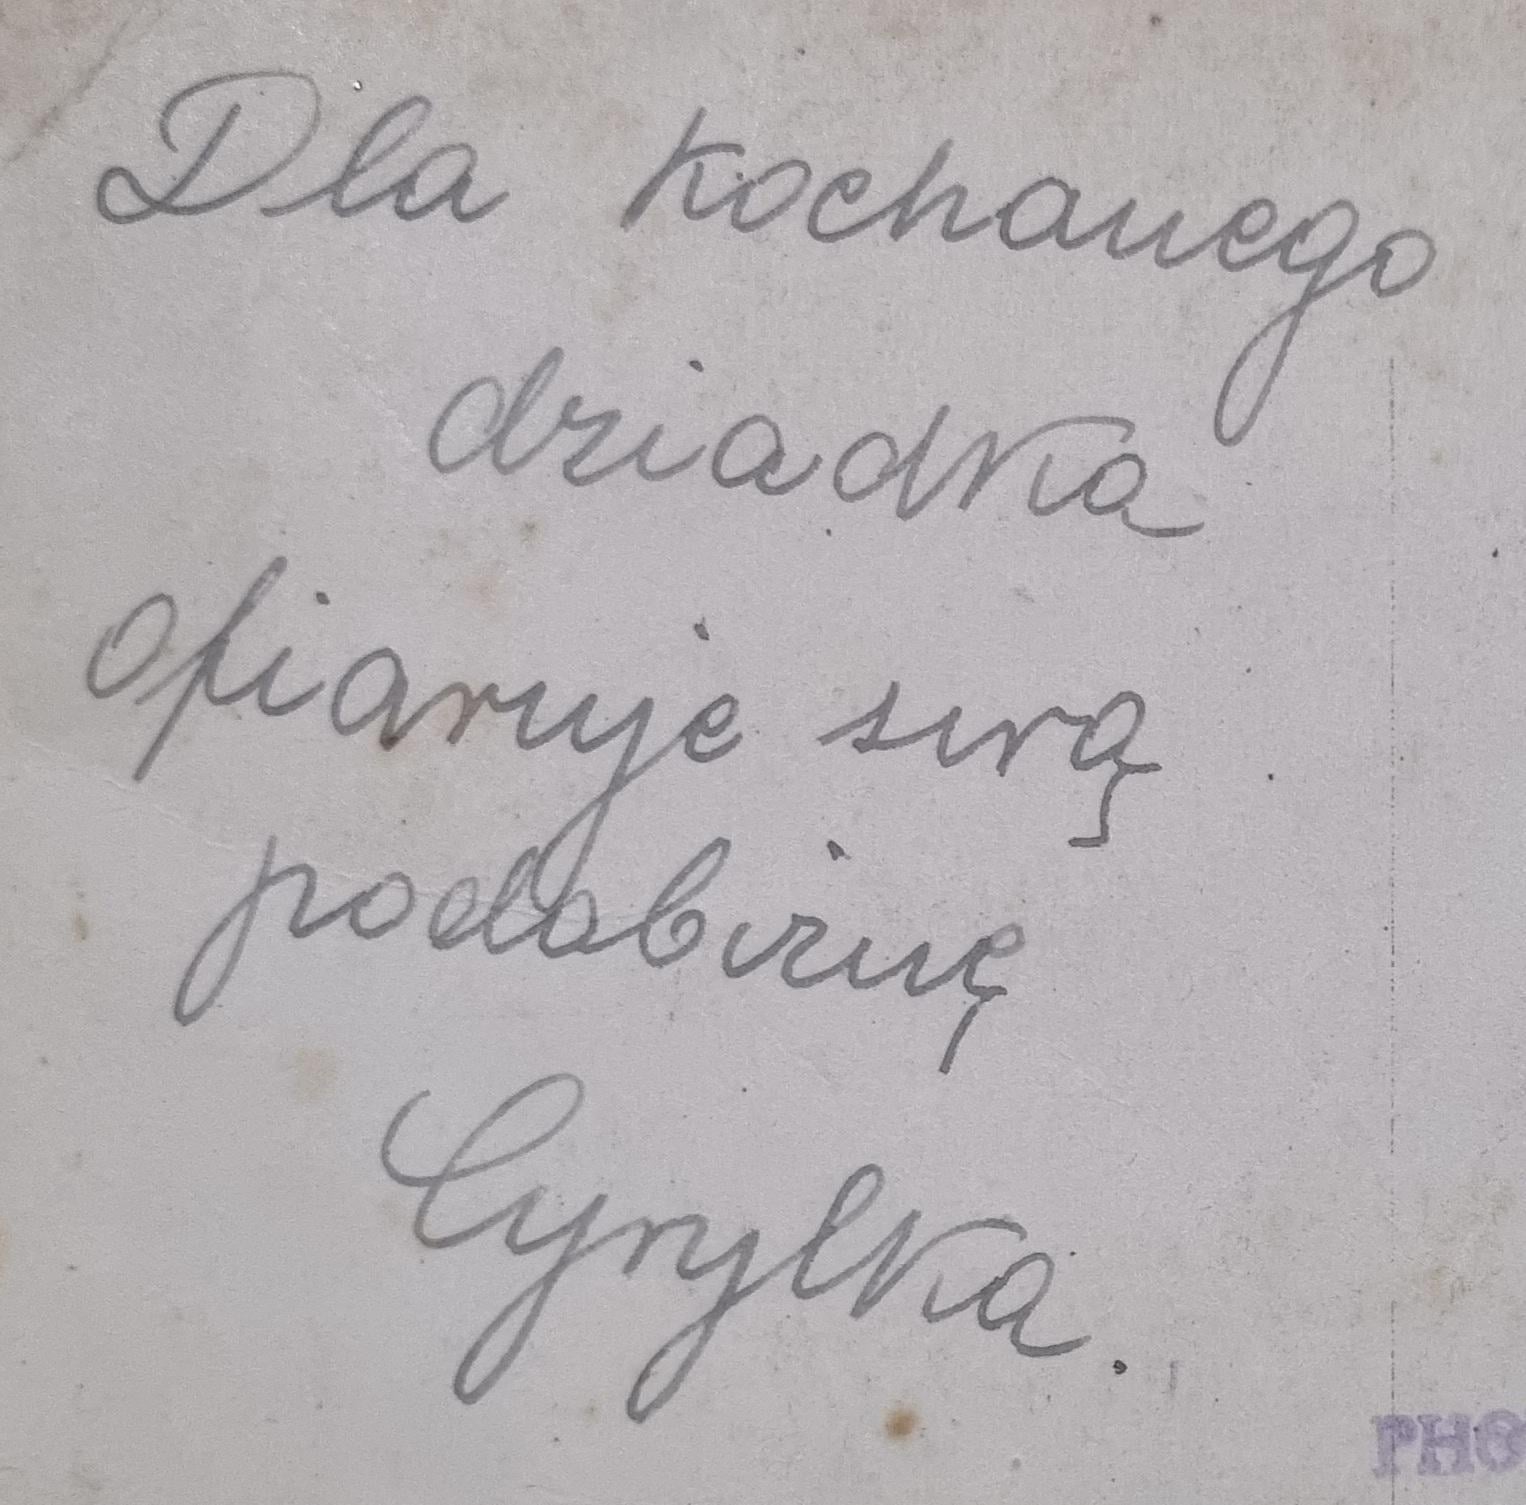 Dla kochanego
dziadka
ofiaruje swą
podobiznę
Cyrylka.
PHO